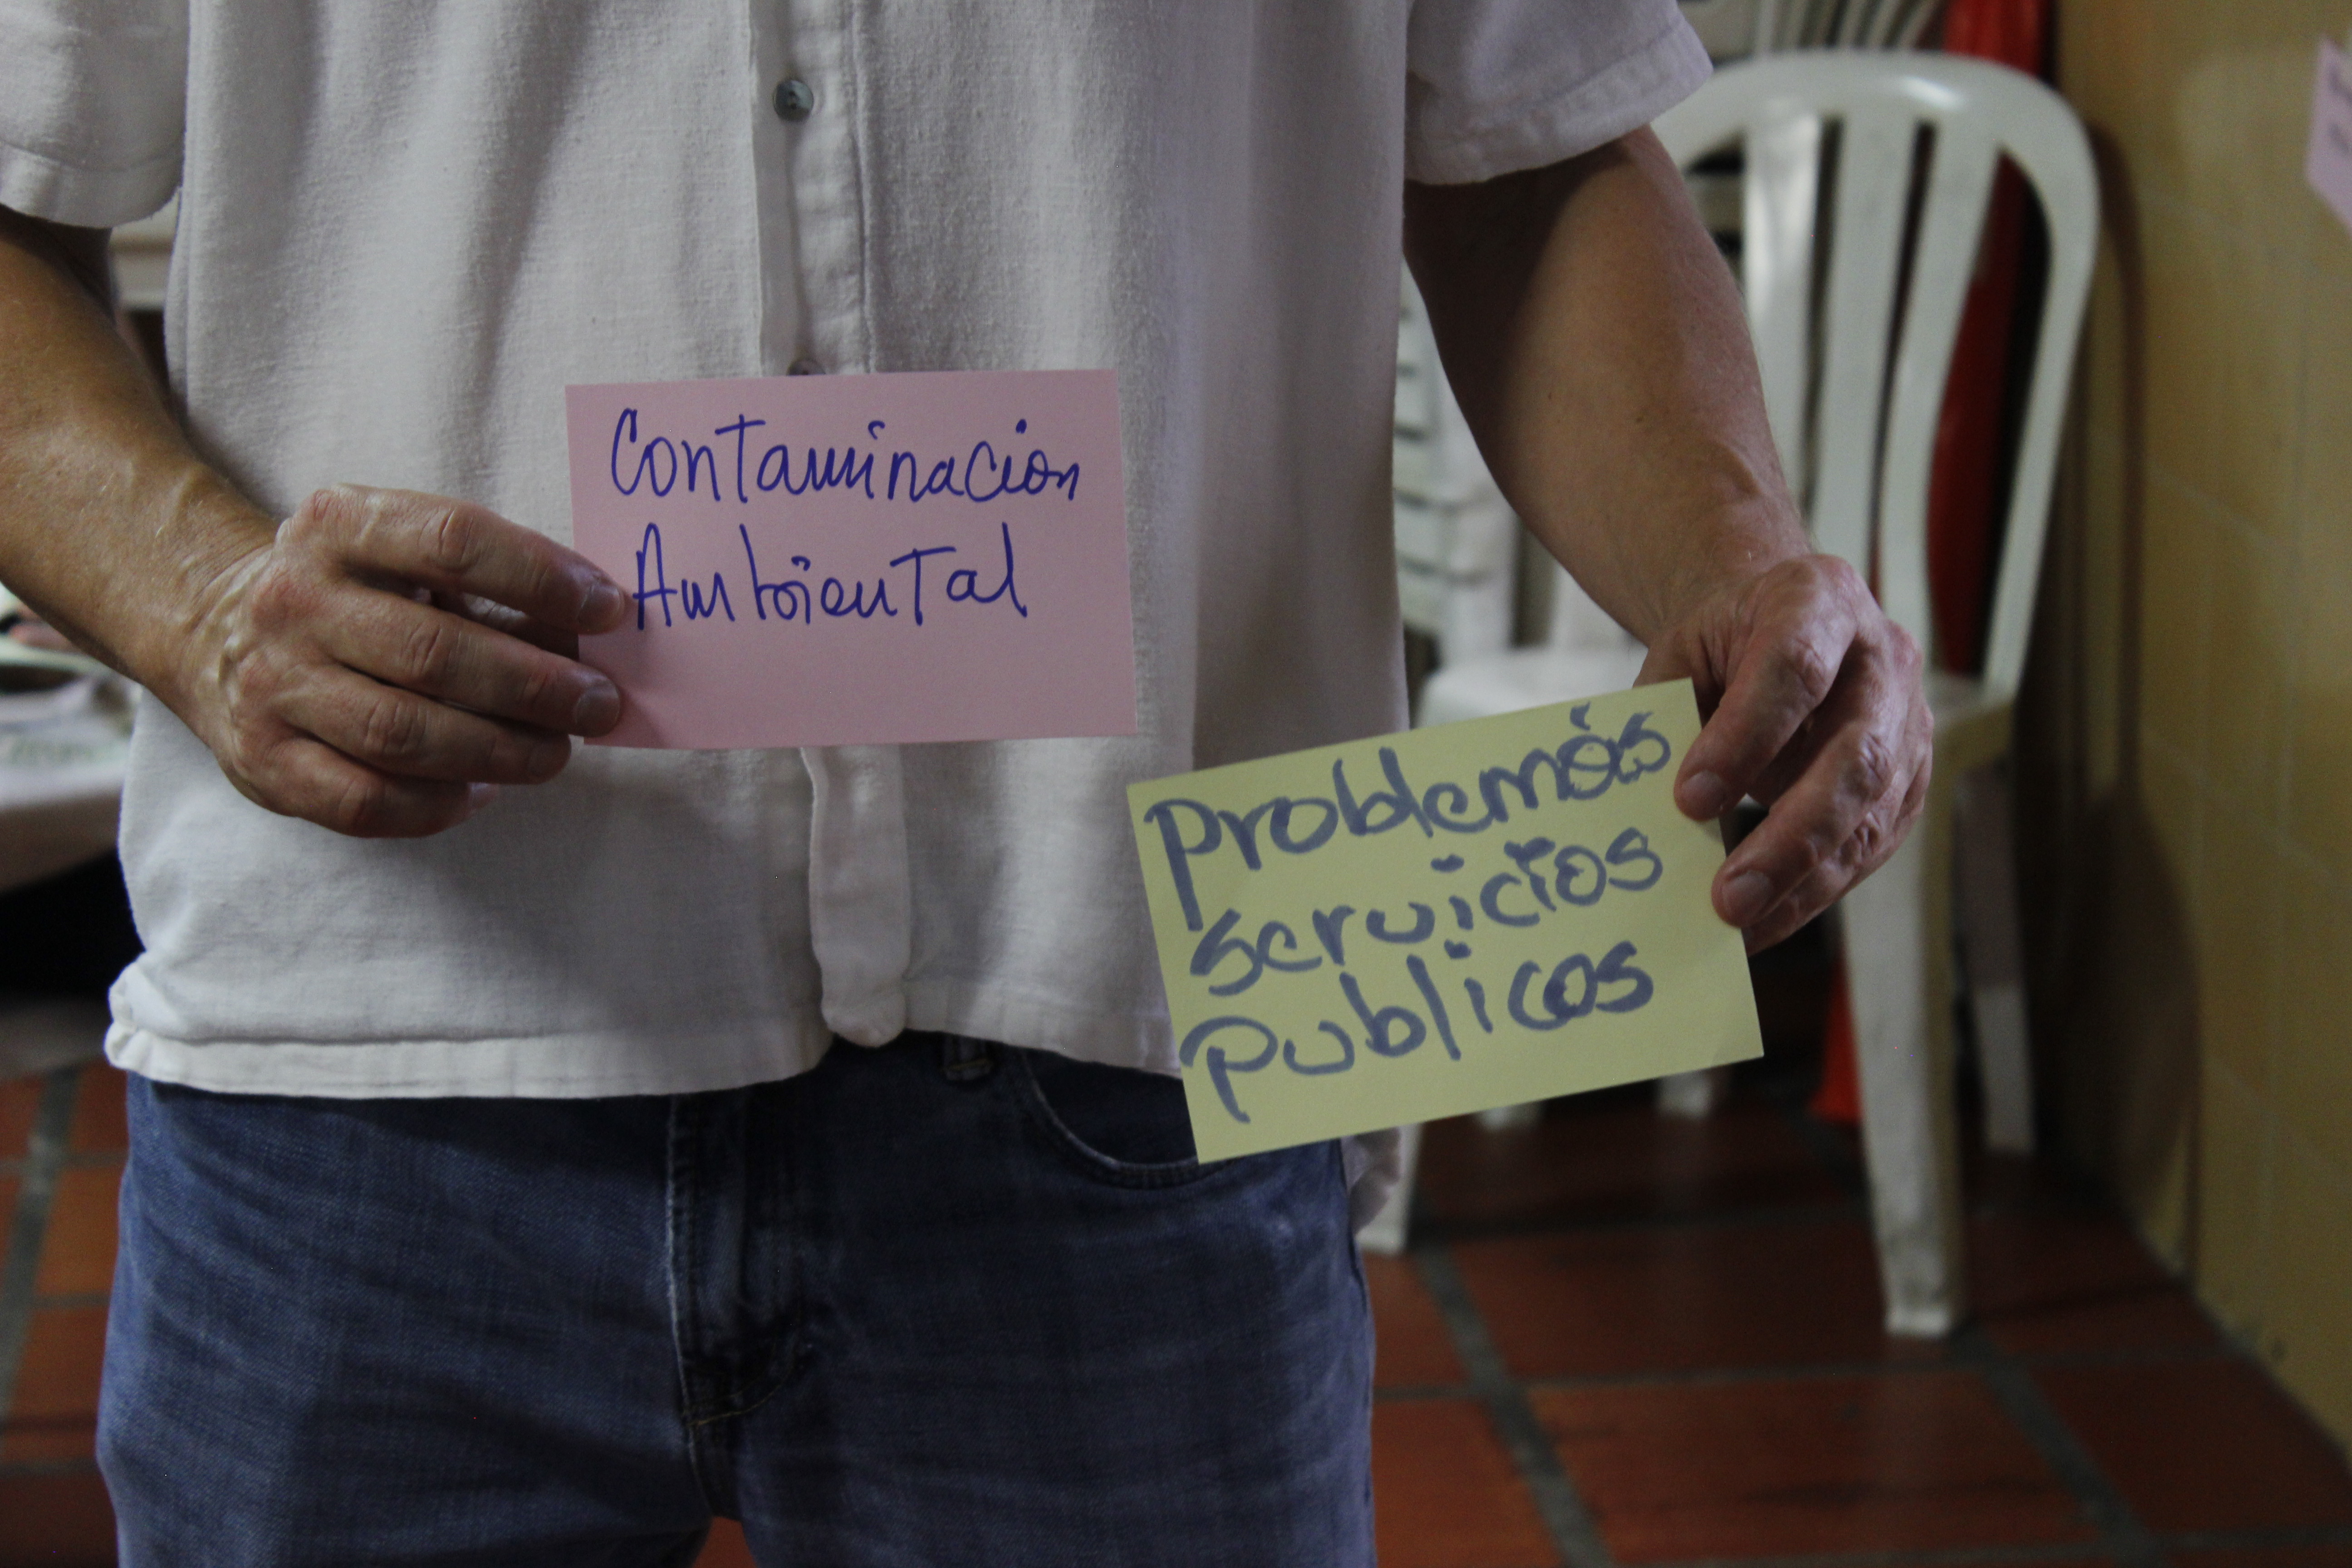 Contaminacion
Ambiental
Problemas
servicios
publicos